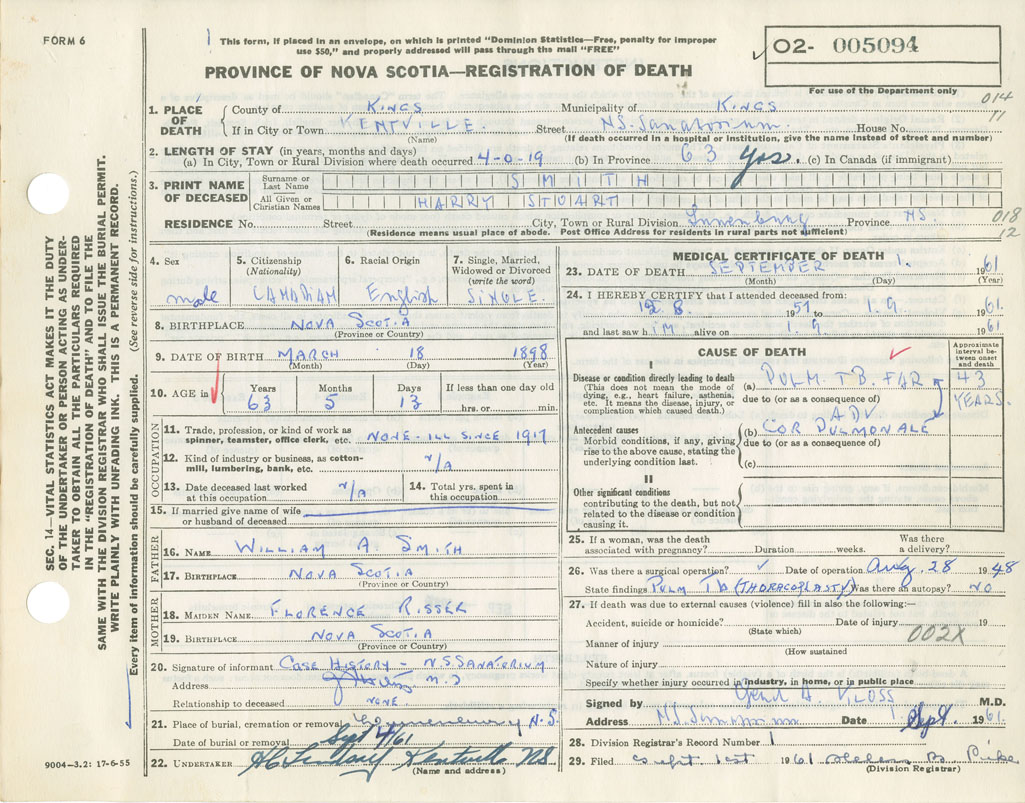 FORM 6
This form, if placed in an envelope, on which is printed "Dominion Statistics—Free, penalty for improper
use $50," and properly addressed will pass through the mail "FREE"
02- 005094
PROVINCE OF NOVA SCOTIA—REGISTRATION OF DEATH
For use of the Department only
SEC. 14—VITAL STATISTICS ACT MAKES IT THE DUTY
OF THE UNDERTAKER OR PERSON ACTING AS UNDER-
TAKER TO OBTAIN ALL THE PARTICULARS REQUIRED
IN THE "REGISTRATION OF DEATH" AND TO FILE THE
SAME WITH THE DIVISION REGISTRAR WHO SHALL ISSUE THE BURIAL PERMIT.
WRITE PLAINLY WITH UNFADING INK. THIS IS A PERMANENT RECORD.
Every item of information should be carefully supplied. (See reverse side for instructions.)
1. PLACE OF DEATH
County of Kings Municipality of Kings 014
If in City or Town KENTVILLE. Street NS. Sanatorium. House No.
(Name) (If death occurred in a hospital or institution, give the name instead of street and number)
2. LENGTH OF STAY (in years, months and days)
(a) In City, Town or Rural Division where death occurred 4-0-19 (b) In Province 63 yrs. (c) In Canada (if immigrant)
3. PRINT NAME OF DECEASED
Surname or Last Name SMITH
All Given or Christian Names HARRY STUART
RESIDENCE No. Street City, Town or Rural Division Lunenburg Province NS. 018 12
(Residence means usual place of abode. Post Office Address for residents in rural parts not sufficient)
4. Sex male
5. Citizenship (Nationality) CANADIAN
6. Racial Origin English
7. Single, Married, Widowed or Divorced (write the word) SINGLE.
8. BIRTHPLACE NOVA SCOTIA
(Province or Country)
9. DATE OF BIRTH MARCH 18 1898
(Month) (Day) (Year)
10. AGE in Years 63 Months 5 Days 13 If less than one day old hrs. or min.
OCCUPATION
11. Trade, profession, or kind of work as
spinner, teamster, office clerk, etc. NONE - ILL SINCE 1917
12. Kind of industry or business, as cotton-
mill, lumbering, bank, etc. N/A
13. Date deceased last worked
at this occupation N/A
14. Total yrs. spent in
this occupation
15. If married give name of wife
or husband of deceased
FATHER
16. NAME WILLIAM A. SMITH
17. BIRTHPLACE NOVA SCOTIA
(Province or Country)
MOTHER
18. MAIDEN NAME FLORENCE RISSER
19. BIRTHPLACE NOVA SCOTIA
(Province or Country)
20. Signature of informant CASE HISTORY - N.S SANATORIUM
Address
Relationship to deceased NONE.
21. Place of burial, cremation or removal N.S.
Date of burial or removal Sept 4/61
22. UNDERTAKER Lindsay Kentville NS
(Name and address)
9004—3.2: 17-6-55
MEDICAL CERTIFICATE OF DEATH
23. DATE OF DEATH SEPTEMBER 1. 1961
(Month) (Day) (Year)
24. I HEREBY CERTIFY that I attended deceased from:
8. 1957 to 1.9. 1961.
and last saw him alive on 1.9 1961
CAUSE OF DEATH
Approximate interval between onset and death
I
Disease or condition directly leading to death
(This does not mean the mode of
dying, e.g., heart failure, asthenia,
etc. It means the disease, injury, or
complication which caused death.)
(a) PULM. TB. FAR ADV 43 YEARS.
due to (or as a consequence of)
Antecedent causes
Morbid conditions, if any, giving
rise to the above cause, stating the
underlying condition last.
(b) COR PULMONALE
due to (or as a consequence of)
(c)
II
Other significant conditions
contributing to the death, but not
related to the disease or condition
causing it.
25. If a woman, was the death
associated with pregnancy? Duration weeks. Was there a delivery?
26. Was there a surgical operation? Date of operation Aug. 28 1948
State findings PULM TB (THORACOPLASTY) Was there an autopsy? NO
27. If death was due to external causes (violence) fill in also the following:—
Accident, suicide or homicide? Date of injury 19
(State which)
Manner of injury 002X
(How sustained
Nature of injury
Specify whether injury occurred in industry, in home, or in public place
Signed by KLOSS M.D.
Address N.S. Sanatorium Date 1. Sept. 1961.
28. Division Registrar's Record Number 1
29. Filed Sept 1st 1961
(Division Registrar)